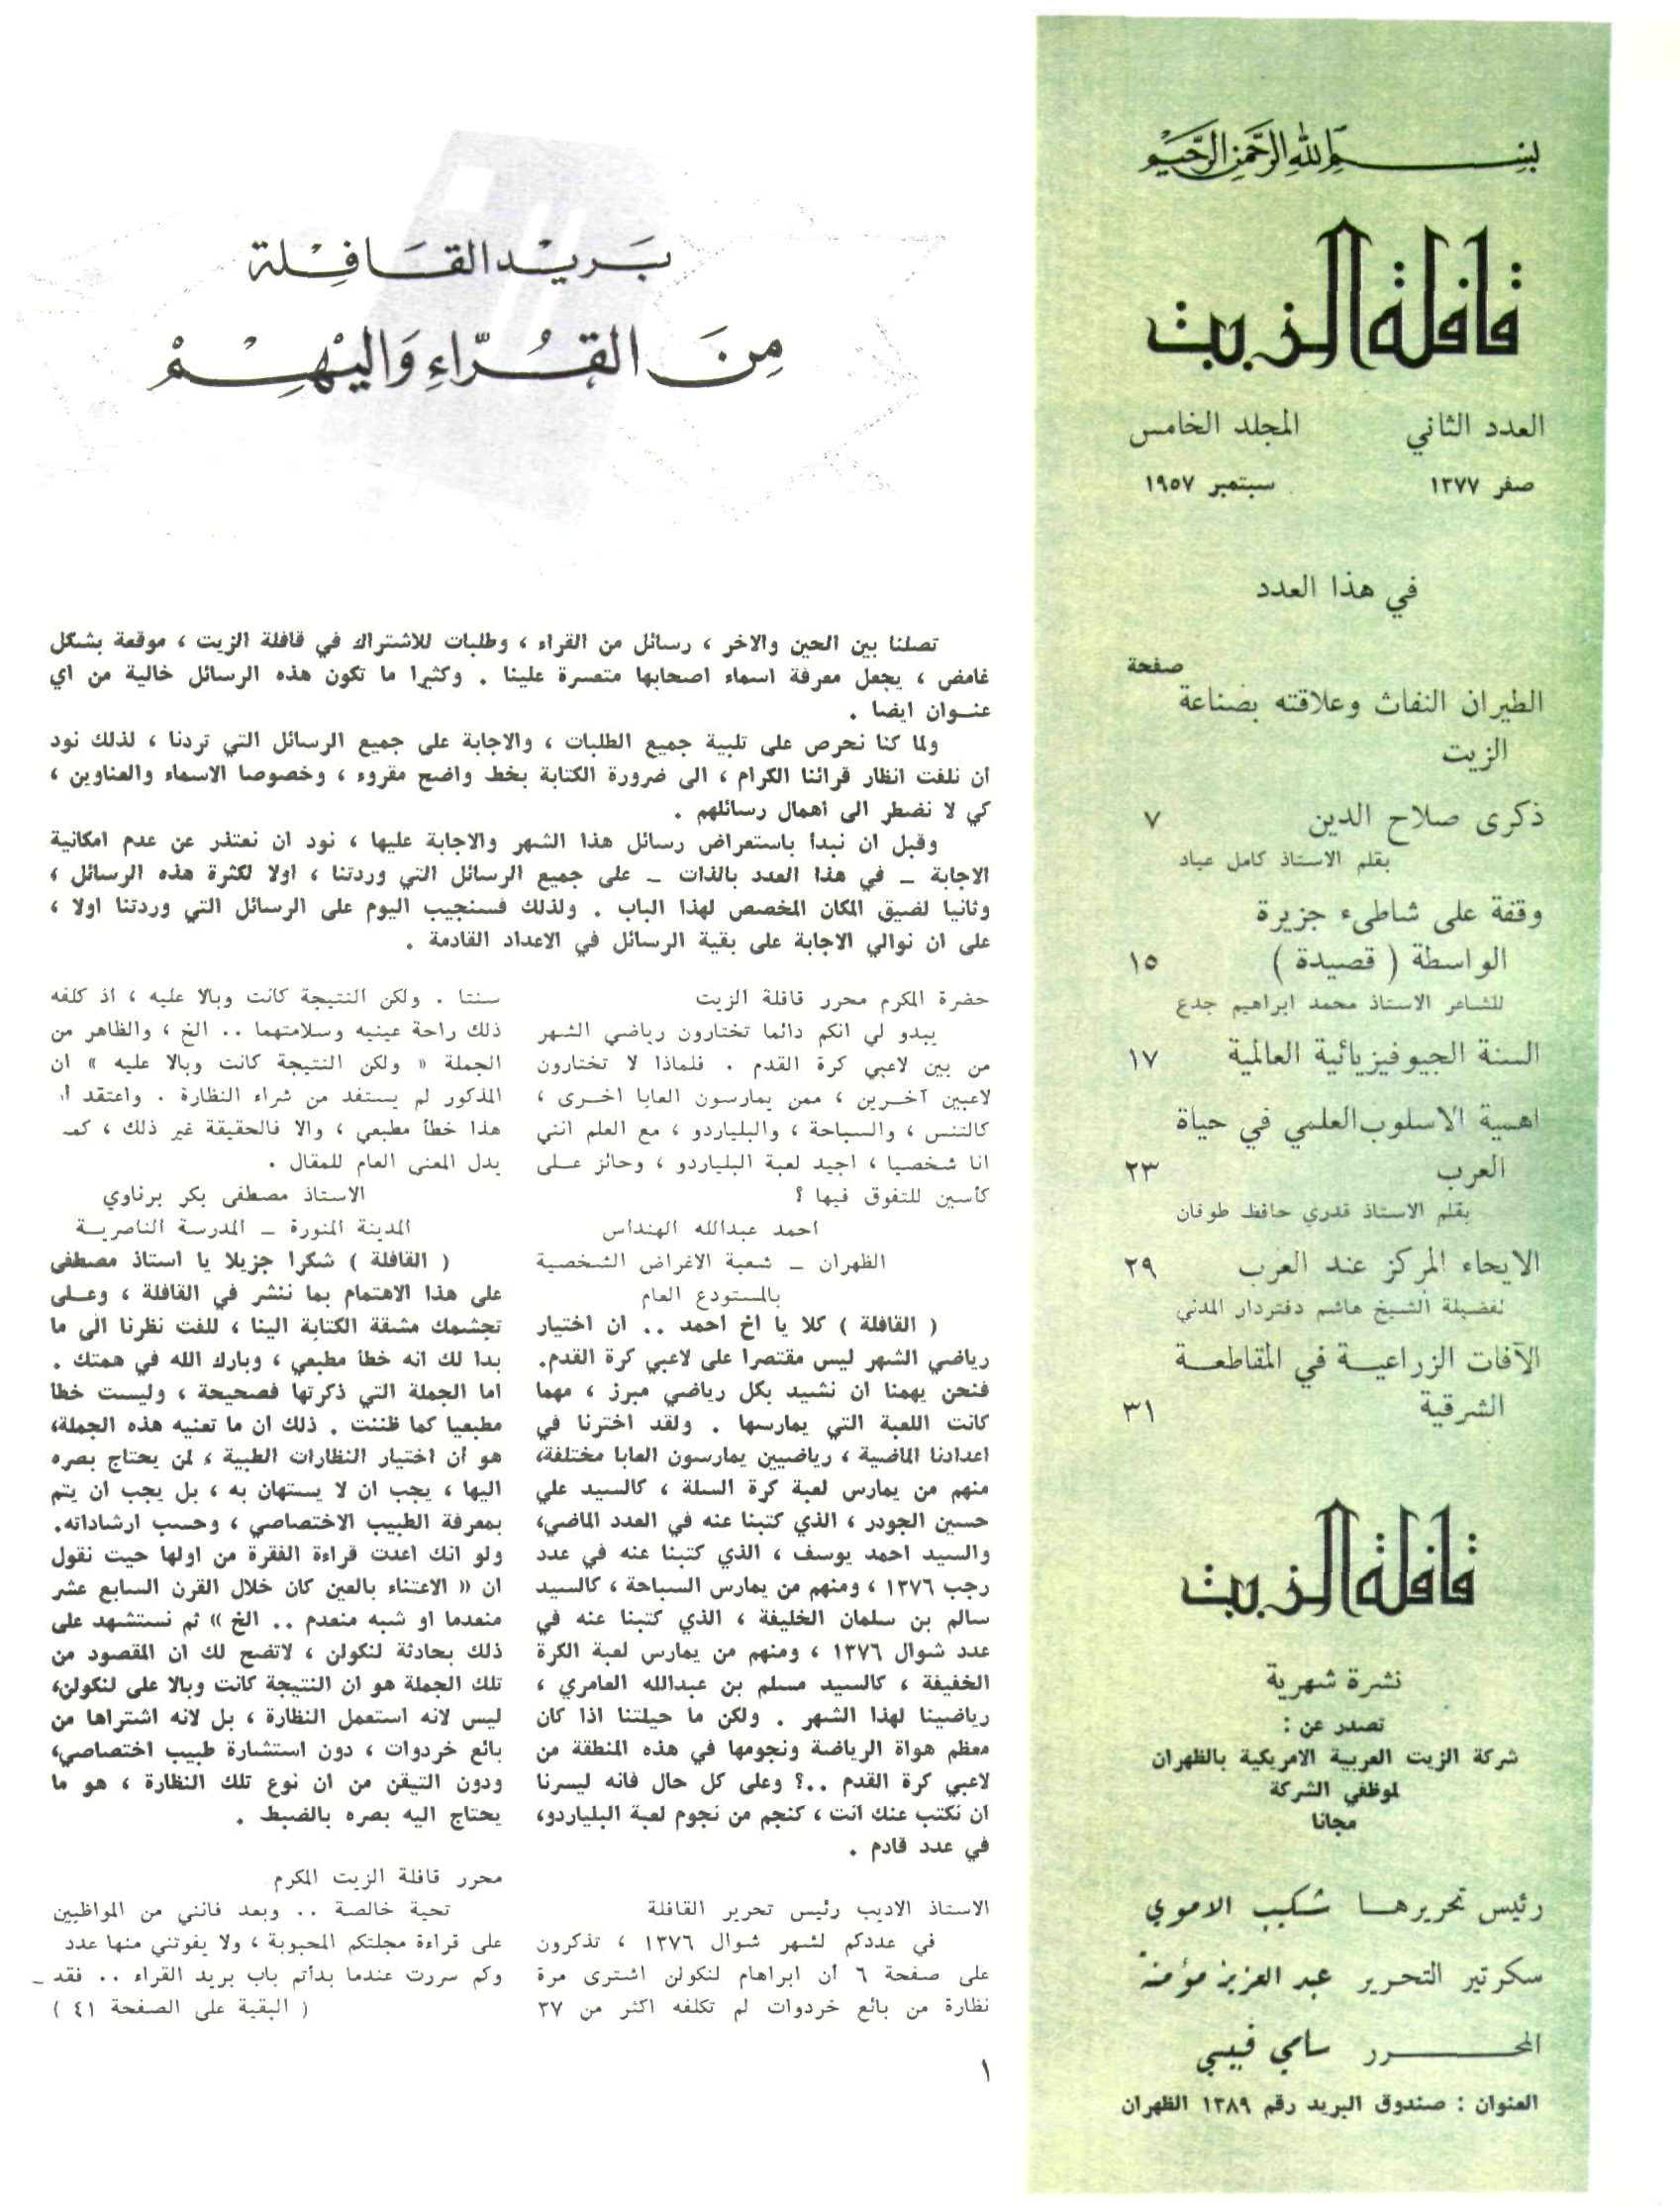 بسم الله الرحمن الرحيم
قافلة الزيت
العدد الثاني المجلد الخامس
صفر ١٣٧٧ سبتمبر ١٩٥٧
في هذا العدد
صفحة
الطيران النفاث وعلاقته بصناعة
الزيت
ذكرى صلاح الدين ٧
بقلم الاستاذ كامل عياد
وقفة على شاطىء جزيرة
الواسطة ( قصيدة ) ١٥
للشاعر الاستاذ محمد ابراهيم جدع
السنة الجيوفيزيائية العالمية ١٧
اهمية الاسلوب العلمي في حياة
العرب ٢٣
بقلم الاستاذ قدري حافظ طوقان
الايحاء المركز عند العرب ٢٩
لفضيلة الشيخ هاشم دفتردار المدني
الآفات الزراعية في المقاطعة
الشرقية ٣١
قافلة الزيت
نشرة شهرية
تصدر عن :
شركة الزيت العربية الامريكية بالظهران
لموظفي الشركة
مجانا
رئيس تحريرها شكيب الاموي
سكرتير التحرير عبد العزيز مؤمنة
المحرر سامي قبيسي
العنوان : صندوق البريد رقم ١٣٨٩ الظهران
بَريْد القَافِلة
مِنَ القُرّاءِ وَاليْهِمْ
تصلنا بين الحين والاخر ، رسائل من القراء ، وطلبات للاشتراك في قافلة الزيت ، موقعة بشكل
غامض ، يجعل معرفة اسماء اصحابها متعسرة علينا . وكثيرا ما تكون هذه الرسائل خالية من اي
عنوان ايضا .
ولما كنا نحرص على تلبية جميع الطلبات ، والاجابة على جميع الرسائل التي تردنا ، لذلك نود
أن نلفت انظار قرائنا الكرام ، الى ضرورة الكتابة بخط واضح مقروء ، وخصوصا الاسماء والعناوين ،
كي لا نضطر الى اهمال رسائلهم .
وقبل ان نبدأ باستعراض رسائل هذا الشهر والاجابة عليها ، نود ان نعتذر عن عدم امكانية
الاجابة ــ في هذا العدد بالذات ــ على جميع الرسائل التي وردتنا ، اولا لكثرة هذه الرسائل ،
وثانيا لضيق المكان المخصص لهذا الباب . ولذلك فسنجيب اليوم على الرسائل التي وردتنا اولا ،
على ان نوالي الاجابة على بقية الرسائل في الاعداد القادمة .
حضرة المكرم محرر قافلة الزيت
يبدو لي انكم دائما تختارون رياضي الشهر
من بين لاعبي كرة القدم . فلماذا لا تختارون
لاعبين آخرين ، ممن يمارسون العابا اخرى ،
كالتنس ، والسباحة ، والبلياردو ، مع العلم انني
انا شخصيا ، اجيد لعبة البلياردو ، وحائز على
كأسين للتفوق فيها ؟
احمد عبدالله الهنداس
الظهران ــ شعبة الاغراض الشخصية
بالمستودع العام
( القافلة ) كلا يا اخ احمد .. ان اختيار
رياضي الشهر ليس مقتصرا على لاعبي كرة القدم.
فنحن يهمنا ان نشيد بكل رياضي مبرز ، مهما
كانت اللعبة التي يمارسها . ولقد اخترنا في
اعدادنا الماضية ، رياضيين يمارسون العابا مختلفة،
منهم من يمارس لعبة كرة السلة ، كالسيد علي
حسين الجودر ، الذي كتبنا عنه في العدد الماضي،
والسيد احمد يوسف ، الذي كتبنا عنه في عدد
رجب ١٣٧٦ ، ومنهم من يمارس السباحة ، كالسيد
سالم بن سلمان الخليفة ، الذي كتبنا عنه في
عدد شوال ١٣٧٦ ، ومنهم من يمارس لعبة الكرة
الخفيفة ، كالسيد مسلم بن عبدالله العامري ،
رياضينا لهذا الشهر . ولكن ما حيلتنا اذا كان
معظم هواة الرياضة ونجومها في هذه المنطقة من
لاعبي كرة القدم ..؟ وعلى كل حال فانه ليسرنا
ان نكتب عنك انت ، كنجم من نجوم لعبة البلياردو،
في عدد قادم .
الاستاذ الاديب رئيس تحرير القافلة
في عددكم لشهر شوال ١٣٧٦ ، تذكرون
على صفحة ٦ أن ابراهام لنكولن اشترى مرة
نظارة من بائع خردوات لم تكلفه اكثر من ٣٧
سنتا . ولكن النتيجة كانت وبالا عليه ، اذ كلفه
ذلك راحة عينيه وسلامتهما .. الخ ، والظاهر من
الجملة « ولكن النتيجة كانت وبالا عليه » ان
المذكور لم يستفد من شراء النظارة . واعتقد أ
هذا خطأ مطبعي ، والا فالحقيقة غير ذلك ، كمـ
يدل المعنى العام للمقال .
الاستاذ مصطفى بكر برناوي
المدينة المنورة ــ المدرسة الناصرية
( القافلة ) شكرا جزيلا يا استاذ مصطفى
على هذا الاهتمام بما ننشر في القافلة ، وعلى
تجشمك مشقة الكتابة الينا ، للفت نظرنا الى ما
بدا لك انه خطأ مطبعي ، وبارك الله في همتك .
اما الجملة التي ذكرتها فصحيحة ، وليست خطأ
مطبعيا كما ظننت . ذلك ان ما تعنيه هذه الجملة،
هو أن اختيار النظارات الطبية ، لمن يحتاج بصره
اليها ، يجب ان لا يستهان به ، بل يجب ان يتم
بمعرفة الطبيب الاختصاصي ، وحسب ارشاداته.
ولو انك اعدت قراءة الفقرة من اولها حيث نقول
ان « الاعتناء بالعين كان خلال القرن السابع عشر
منعدما او شبه منعدم .. الخ » ثم نستشهد على
ذلك بحادثة لنكولن ، لاتضح لك ان المقصود من
تلك الجملة هو ان النتيجة كانت وبالا على لنكولن،
ليس لانه استعمل النظارة ، بل لانه اشتراها من
بائع خردوات ، دون استشارة طبيب اختصاصي،
ودون التيقن من ان نوع تلك النظارة ، هو ما
يحتاج اليه بصره بالضبط .
محرر قافلة الزيت المكرم
تحية خالصة .. وبعد فانني من المواظبين
على قراءة مجلتكم المحبوبة ، ولا يفوتني منها عدد
وكم سررت عندما بدأتم باب بريد القراء .. فقد ــ
( البقية على الصفحة ٤١ )
١